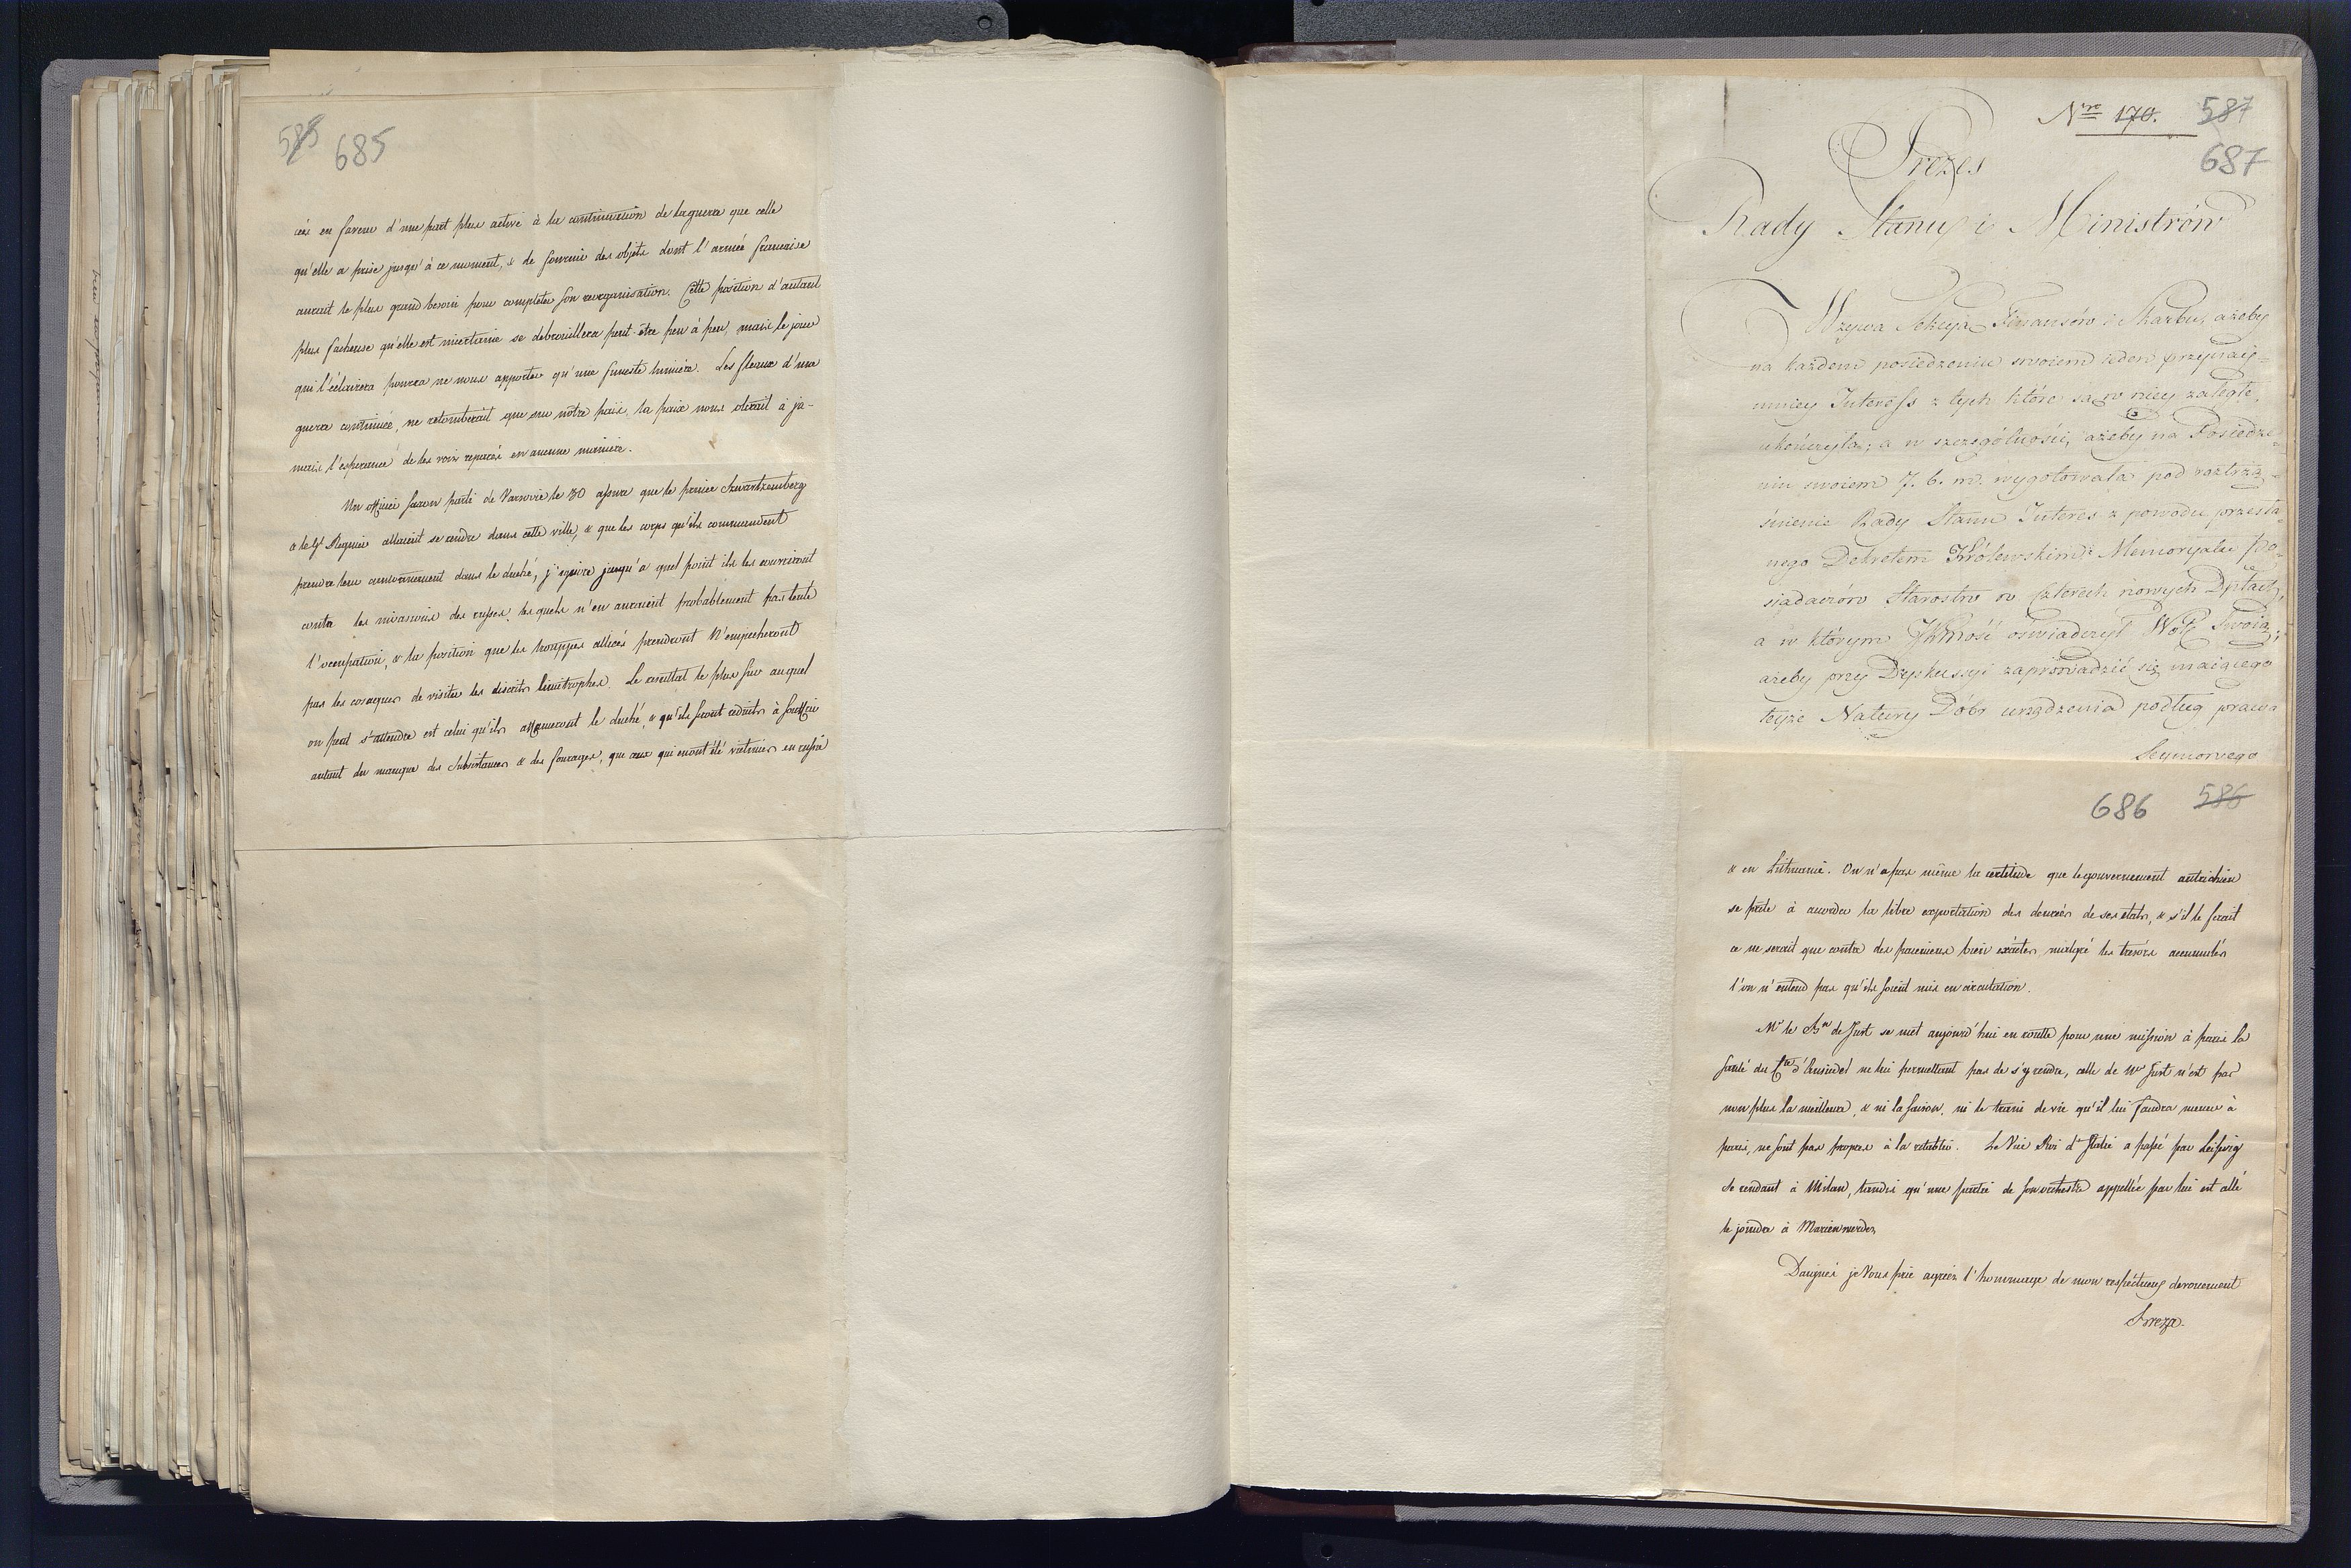 585 685
cés en faveur d'une part plus active à la continuation de la guerre que celle
qu'elle a prise jusqu'à ce moment, & de fournir des objets dont l'armée francaise
aurait le plus grand besoin pour completer son reorganisation. Cette position d'autant
plus facheuse qu'elle est incertaine se debrouillera peut-être peu à peu, mais le jour
qui l'éclairera pourra ne nous apporter qu'une funeste lumière. Les fleaux d'une
guerre continuée, ne retomberait que sur nôtre païs, la paix nous oterait à ja-
mais l'esperance de les voir reparés en aucune manière.
Un officier saxon parti de Varsovie le 30 assure que le prince Schwartzemberg
& le Gl Regnier allaient se rendre dans cette ville, & que les corps qu'ils commandent
prendre leur cantonnement dans le duché, j'ignore jusqu'à quel point ils les couvriront
contre les invasions des russes, les quels n'en auraient probablement pas tenté
l'occupation, & la position que les trouppes alliées prendront n'empecheront
pas les cosaques de visiter les discrits limitrophes. Le resultat le plus sur auquel
on peut s'attendre est celui qu'ils affameront le duché, & qu'ils seront reduits à souffrir
autant du manque des subsistances & des fourages, que ceux qui en ont été victimes en russie
Nro 170. 587
687
Prezes
Rady Stanu i Ministrów
Wzywa Sekcyą Finansów i Skarbu, ażeby
na każdem posiedzeniu swoiem ieden przynaiy-
mniey Interess z tych które są w niey zaległe,
ukończyła; a w szczególności, ażeby na Posiedze-
niu swoiem 7. b. m. wygotowała pod roztrzą-
śnienie Rady Stanu Interes z powodu przesła-
nego Dekretem Królewskim Memoryału Po-
siadaczów Starostw w czterech nowych Dptach,
a w którym JKMość oświadczył Wolę Swoią,
ażeby przy Dyskussyi zaprowadzić się maiącego
teyże Natury Dóbr urządzenia podług prawa
Seymowego
686 586
& en Lithuanie. On n'a pas même la certitude que le gouvernement autrichien
se prete à accorder la libre exportation des denrées de ses etats, & s'il le ferait
ce ne serait que contre des paiemens bien exactes, malgré les tresors accumulés
l'on n'entend pas qu'ils soient mis en circulation.
Mr le Bn de Just se met aujourd'hui en routte pour une mission à paris la
santé du Cte d'Einsiedel ne lui permettant pas de s'y rendre, celle de Mr Just n'est pas
non plus la meilleure, & ni la saison, ni le train de vie qu'il lui faudra mener à
paris, ne sont pas propres à la retablir. Le Vice Roi d'Italie a passé par Leipsig
se rendant à Milan, tandis qu'une partie de son orchestre appellée par lui est allé
le joindre à Marienwerder
Daignés je Vous prie agréer l'hommage de mon respectueux devouement
Breza.